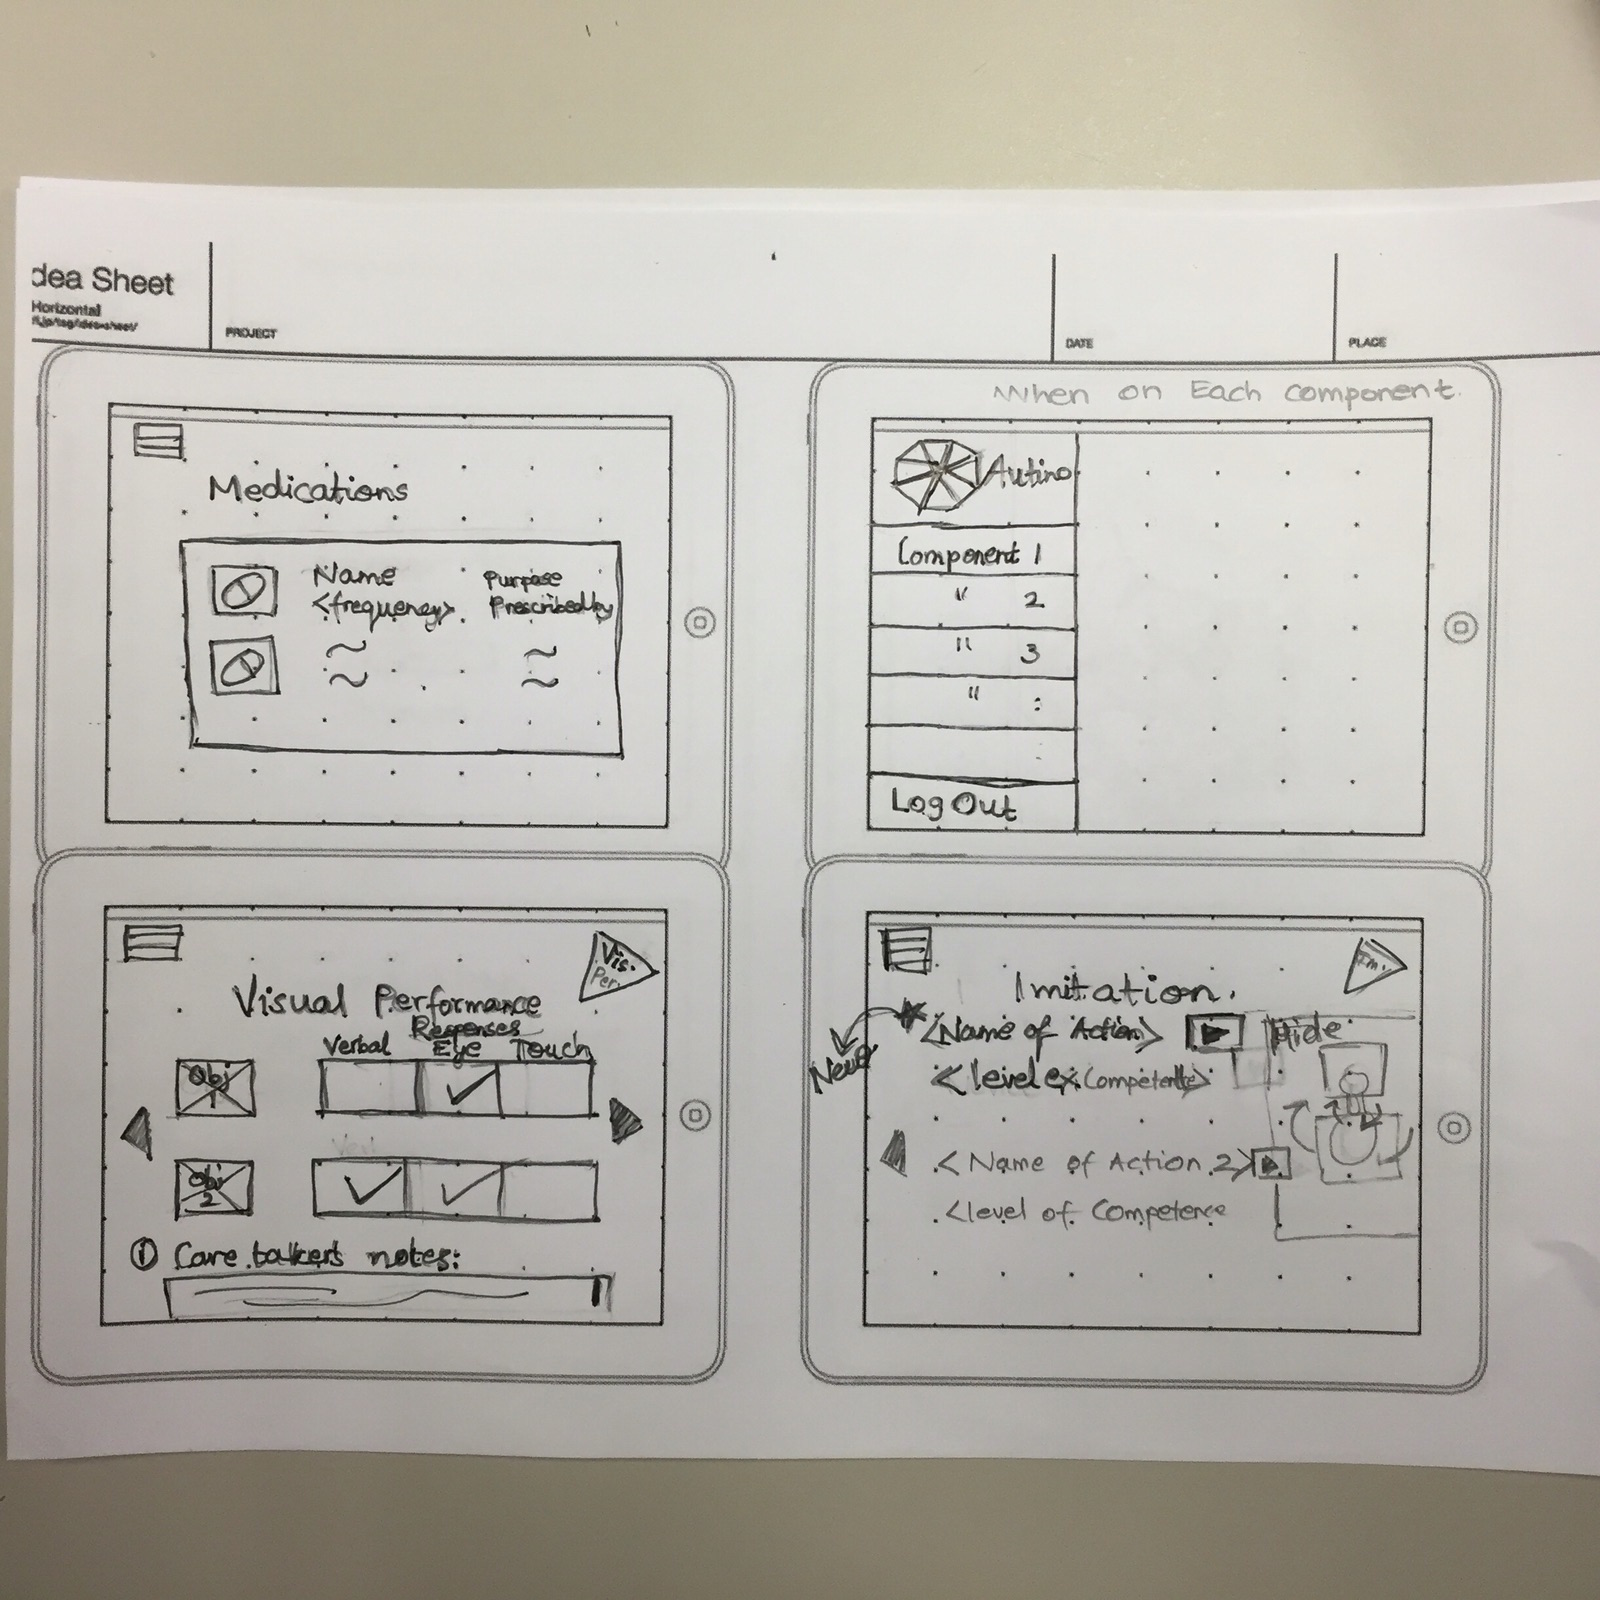 dea Sheet
Horizontal
PROJECT
DATE
PLACE
Medications
Name
<frequency>
Purpose
Prescribed by
When on Each component.
Autino
Component 1
" 2
" 3
" :
Log Out
Vis.
Per.
Visual Performance
Responses
Verbal Eye Touch
Obj
1
Obj
2
i Care takers notes:
Im.
Imitation.
<Name of Action> Hide
New
<level ex. Competent>
<Name of Action 2>
<level of Competence